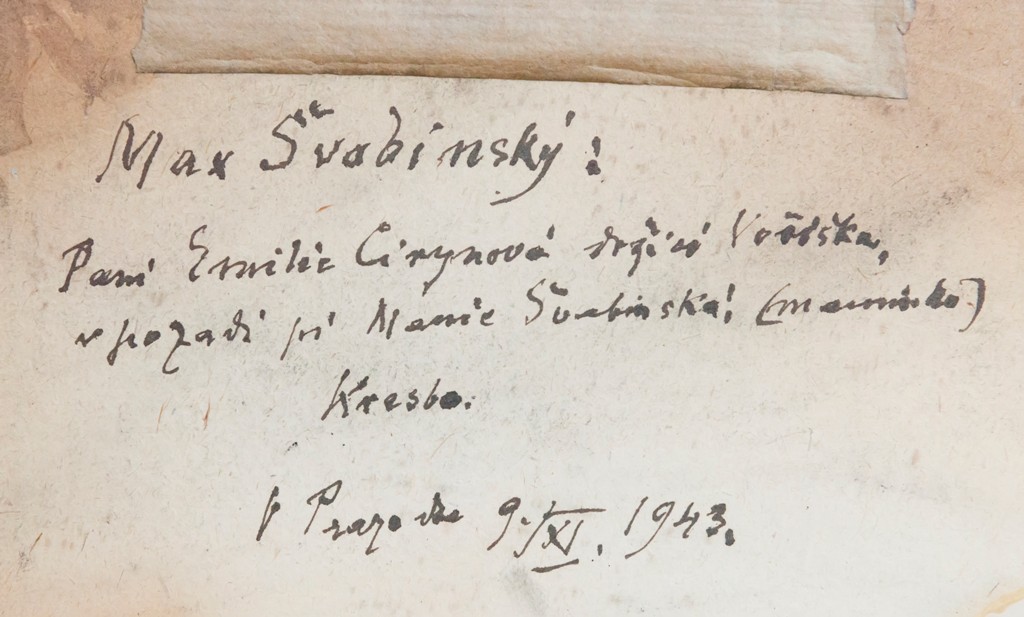 Max Švabinský:
Paní Emilie Cirynová držící Voříška,
v pozadí pí Marie Švabinská! (maminka)
Kresba.
V Praze dne 9./XI. 1943.